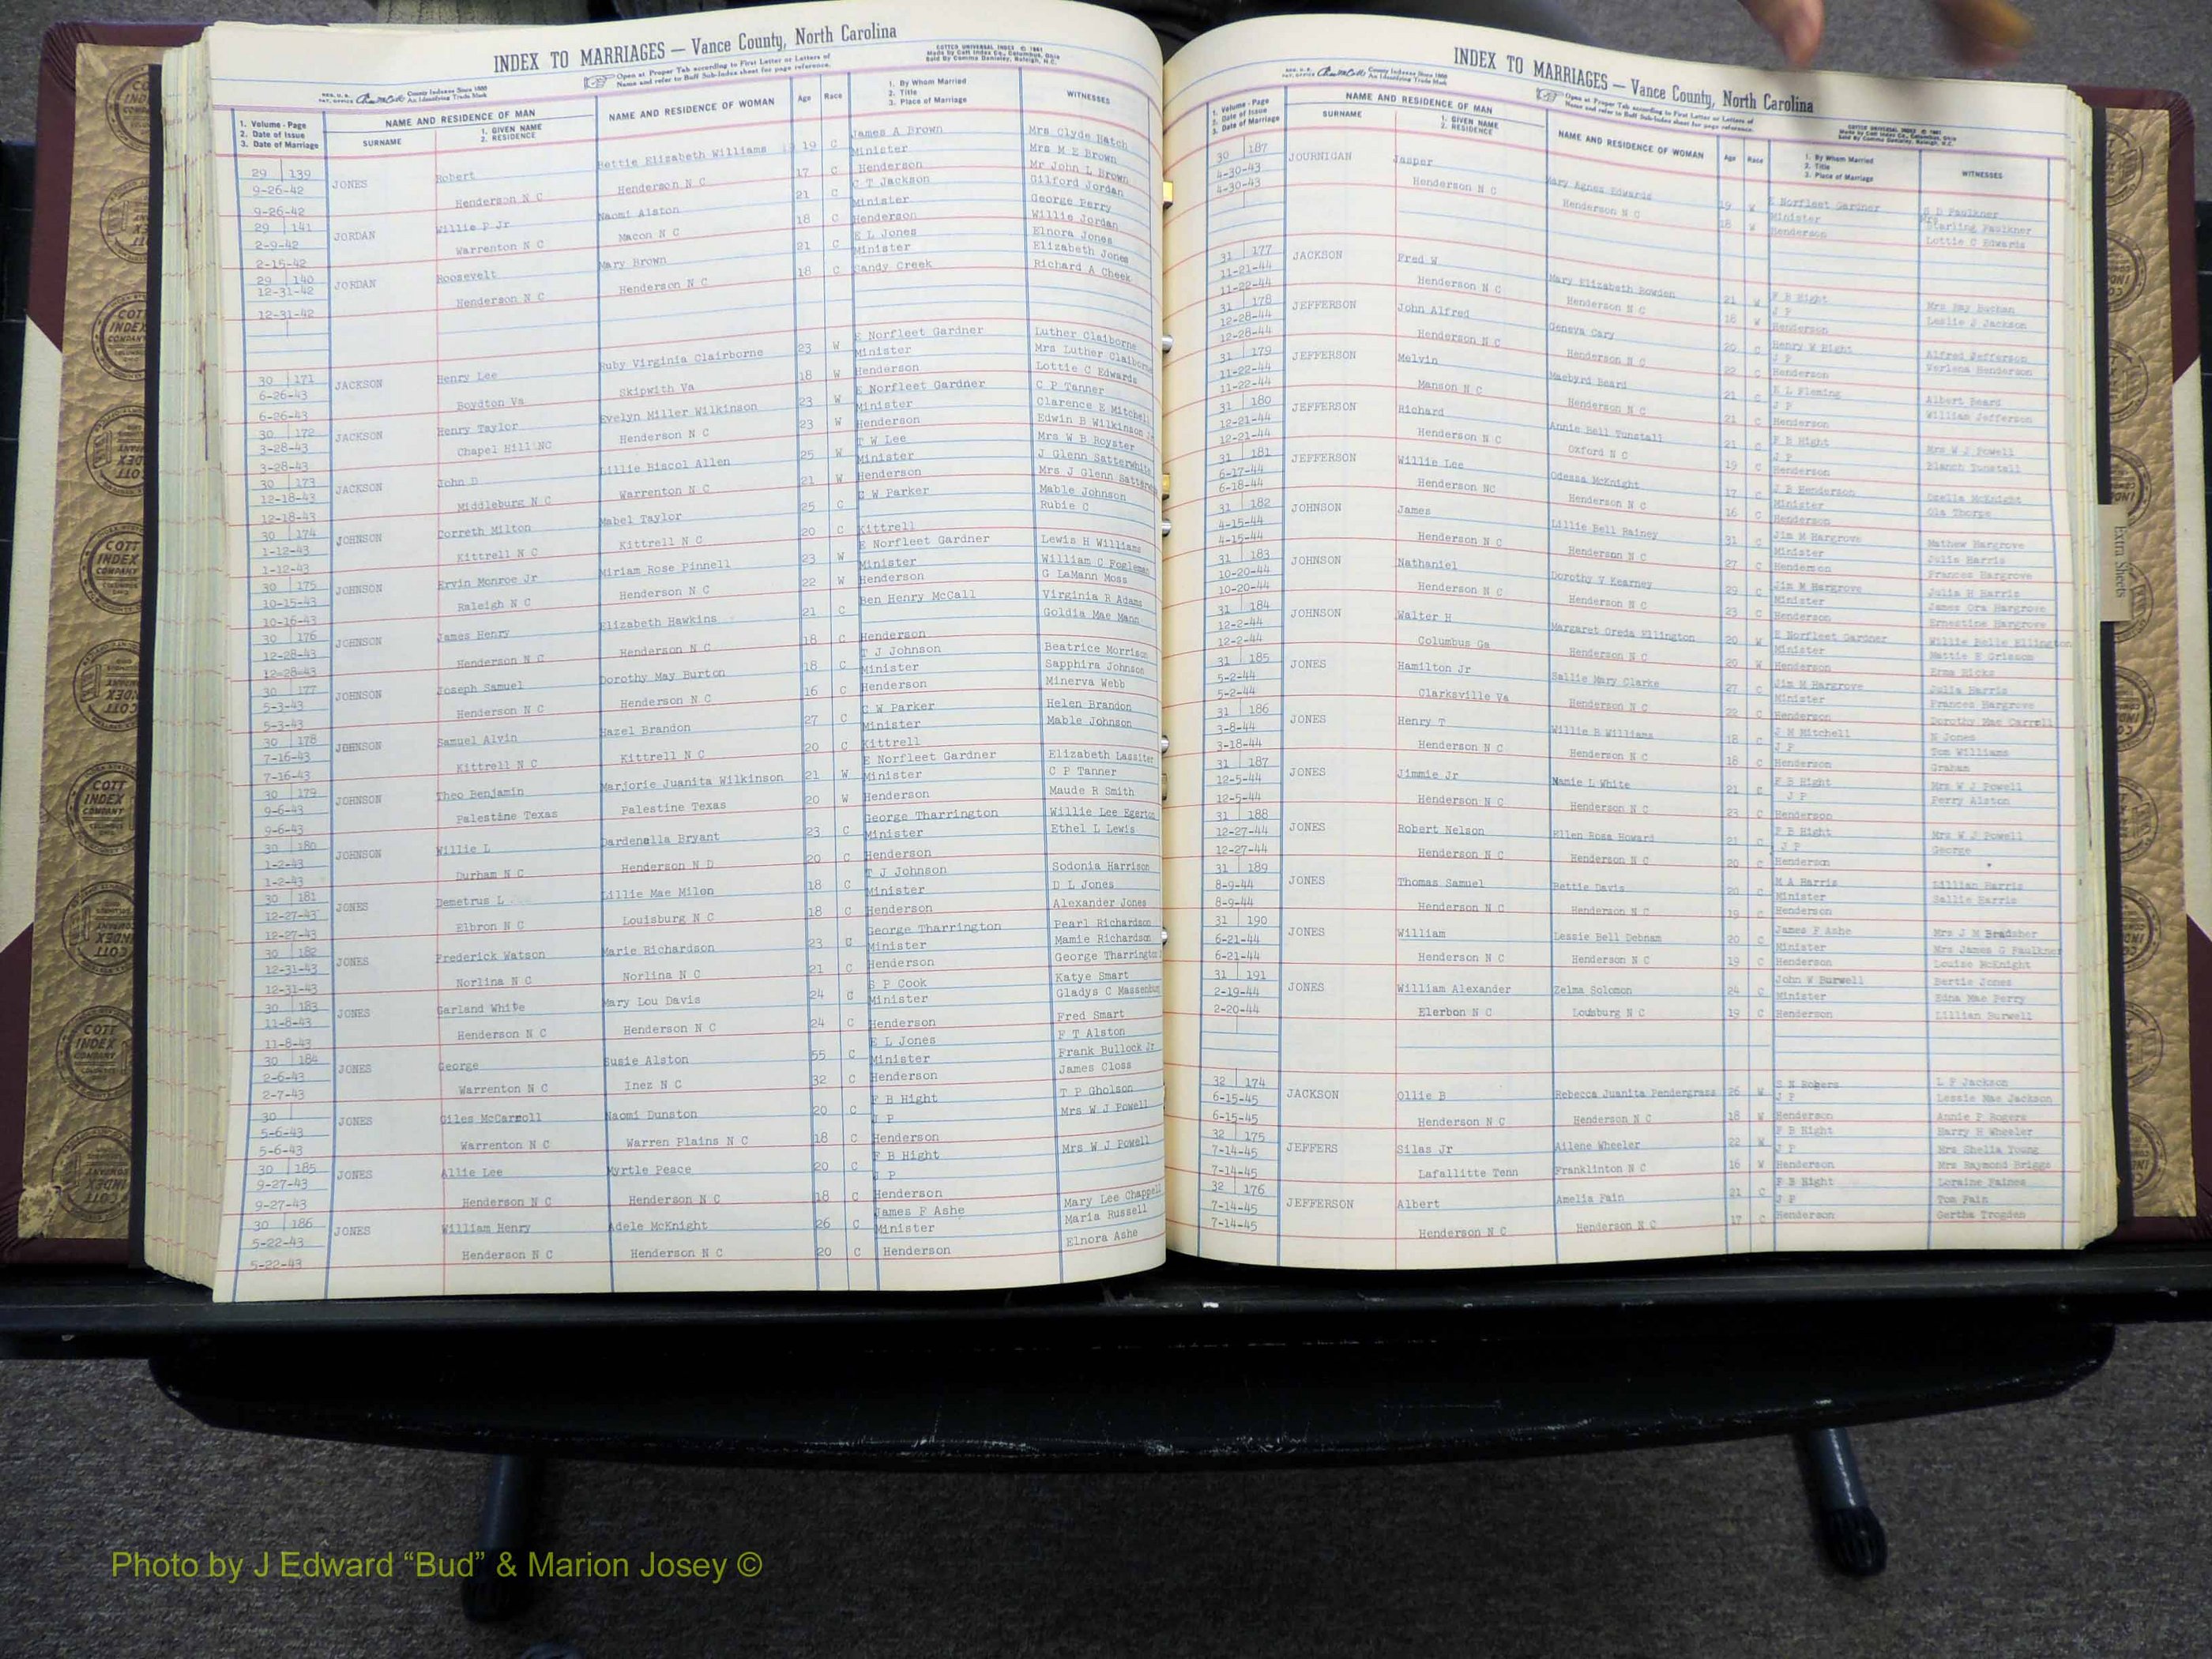 INDEX TO MARRIAGES — Vance County, North Carolina
Open at Proper Tab according to First Letter or Letters of
Name and refer to Buff Sub-Index sheet for page reference.
COTTCO UNIVERSAL INDEX © 1961
Made by Cott Index Co., Columbus, Ohio
Sold By Comma Danieley, Raleigh, N.C.
County Indexes Since 1888
An Identifying Trade Mark
1. Volume - Page
2. Date of Issue
3. Date of Marriage
NAME AND RESIDENCE OF MAN
SURNAME
1. GIVEN NAME
2. RESIDENCE
NAME AND RESIDENCE OF WOMAN
Age
Race
1. By Whom Married
2. Title
3. Place of Marriage
WITNESSES
29 139 JONES Robert Bettie Elizabeth Williams 19 C James A Brown Mrs Clyde Hatch
9-26-42 Minister Mrs M E Brown
9-26-42 Henderson N C Henderson N C 17 C Henderson Mr John L Brown
29 141 JORDAN Willie P Jr Naomi Alston 21 C C T Jackson Gilford Jordan
2-9-42 Minister George Perry
2-15-42 Warrenton N C Macon N C 18 C Henderson Willie Jordan
29 140 JORDAN Roosevelt Mary Brown 21 C E L Jones Elnora Jones
12-31-42 Minister Elizabeth Jones
12-31-42 Henderson N C Henderson N C 18 C Sandy Creek Richard A Cheek
30 171 JACKSON Henry Lee Ruby Virginia Clairborne 23 W E Norfleet Gardner Luther Claiborne
6-26-43 Minister Mrs Luther Claiborne
6-26-43 Boydton Va Skipwith Va 18 W Henderson Lottie C Edwards
30 172 JACKSON Henry Taylor Evelyn Miller Wilkinson 23 W E Norfleet Gardner C P Tanner
3-28-43 Minister Clarence E Mitchell
3-28-43 Chapel Hill NC Henderson N C 23 W Henderson Edwin B Wilkinson
30 173 JACKSON John D Lillie Riscol Allen 25 W T W Lee Mrs W B Royster
12-18-43 Minister J Glenn Satterwhite
12-18-43 Middleburg N C Warrenton N C 21 W Henderson Mrs J Glenn
30 174 JOHNSON Correth Milton Mabel Taylor 25 C C W Parker Mable Johnson
1-12-43 Rubie C
1-12-43 Kittrell N C Kittrell N C 20 C Kittrell
30 175 JOHNSON Ervin Monroe Jr Miriam Rose Pinnell 23 W E Norfleet Gardner Lewis H Williams
10-15-43 Minister William C Fogleman
10-16-43 Raleigh N C Henderson N C 22 W Henderson G LaMann Moss
30 176 JOHNSON James Henry Elizabeth Hawkins 21 C Ben Henry McCall Virginia R Adams
12-28-43 Goldia Mae Mann
12-28-43 Henderson N C Henderson N C 18 C Henderson
30 177 JOHNSON Joseph Samuel Dorothy May Burton 18 C T J Johnson Beatrice Morrison
5-3-43 Minister Sapphira Johnson
5-3-43 Henderson N C Henderson N C 16 C Henderson Minerva Webb
30 178 JOHNSON Samuel Alvin Hazel Brandon 27 C C W Parker Helen Brandon
7-16-43 Minister Mable Johnson
7-16-43 Kittrell N C Kittrell N C 20 C Kittrell
30 179 JOHNSON Theo Benjamin Marjorie Juanita Wilkinson 21 W E Norfleet Gardner Elizabeth Lassiter
9-6-43 Minister C P Tanner
9-6-43 Palestine Texas Palestine Texas 20 W Henderson Maude R Smith
30 180 JOHNSON Willie L Dardenella Bryant 23 C George Tharrington Willie Lee Egerton
1-2-43 Minister Ethel L Lewis
1-2-43 Durham N C Henderson N D 20 C Henderson
30 181 JONES Demetrus L Lillie Mae Milon 18 C T J Johnson Sodonia Harrison
12-27-43 Minister D L Jones
12-27-43 Elbron N C Louisburg N C 18 C Henderson Alexander Jones
30 182 JONES Frederick Watson Marie Richardson 23 C George Tharrington Pearl Richardson
12-31-43 Minister Mamie Richardson
12-31-43 Norlina N C Norlina N C 21 C Henderson George Tharrington
30 183 JONES Garland White Mary Lou Davis 24 C S P Cook Katye Smart
11-8-43 Minister Gladys C Massenburg
11-8-43 Henderson N C Henderson N C 24 C Henderson Fred Smart
30 184 JONES George Susie Alston 55 C E L Jones F T Alston
2-6-43 Minister Frank Bullock Jr
2-7-43 Warrenton N C Inez N C 32 C Henderson James Closs
30 JONES Giles McCarroll Naomi Dunston 20 C F B Hight T P Gholson
5-6-43 J P Mrs W J Powell
5-6-43 Warrenton N C Warren Plains N C 18 C Henderson
30 185 JONES Allie Lee Myrtle Peace 20 C F B Hight Mrs W J Powell
9-27-43 J P
9-27-43 Henderson N C Henderson N C 18 C Henderson
30 186 JONES William Henry Adele McKnight 26 C James F Ashe Mary Lee Chappell
5-22-43 Minister Maria Russell
5-22-43 Henderson N C Henderson N C 20 C Henderson Elnora Ashe
INDEX TO MARRIAGES — Vance County, North Carolina
Open at Proper Tab according to First Letter or Letters of
Name and refer to Buff Sub-Index sheet for page reference.
COTTCO UNIVERSAL INDEX © 1961
Made by Cott Index Co., Columbus, Ohio
Sold By Comma Danieley, Raleigh, N.C.
County Indexes Since 1888
An Identifying Trade Mark
1. Volume - Page
2. Date of Issue
3. Date of Marriage
NAME AND RESIDENCE OF MAN
SURNAME
1. GIVEN NAME
2. RESIDENCE
NAME AND RESIDENCE OF WOMAN
Age
Race
1. By Whom Married
2. Title
3. Place of Marriage
WITNESSES
30 187 JOURNIGAN Jasper Mary Agnes Edwards 19 W E Norfleet Gardner S D Faulkner
4-30-43 Minister Mrs Starling Faulkner
4-30-43 Henderson N C Henderson N C 18 W Henderson Lottie C Edwards
31 177 JACKSON Fred W Mary Elizabeth Bowden 21 W F B Hight Mrs Ray Buchan
11-21-44 J P Leslie J Jackson
11-22-44 Henderson N C Henderson N C 18 W Henderson
31 178 JEFFERSON John Alfred Geneva Cary 20 C Henry W Hight Alfred Jefferson
12-28-44 J P Verlena Henderson
12-28-44 Henderson N C Henderson N C 22 C Henderson
31 179 JEFFERSON Melvin Maebyrd Beard 21 C E L Fleming Albert Beard
11-22-44 J P William Jefferson
11-22-44 Manson N C Henderson N C 21 C Henderson
31 180 JEFFERSON Richard Annie Bell Tunstall 21 C F B Hight Mrs W J Powell
12-21-44 J P Blanch Tunstall
12-21-44 Henderson N C Oxford N C 19 C Henderson
31 181 JEFFERSON Willie Lee Odessa McKnight 17 C J B Henderson Ozella McKnight
6-17-44 Minister Ola Thorpe
6-18-44 Henderson NC Henderson N C 16 C Henderson
31 182 JOHNSON James Lillie Bell Rainey 31 C Jim M Hargrove Mathew Hargrove
4-15-44 Minister Julia Harris
4-15-44 Henderson N C Henderson N C 27 C Henderson Frances Hargrove
31 183 JOHNSON Nathaniel Dorothy V Kearney 29 C Jim M Hargrove Julia H Harris
10-20-44 Minister James Ora Hargrove
10-20-44 Henderson N C Henderson N C 23 C Henderson Ernestine Hargrove
31 184 JOHNSON Walter H Margaret Oreda Ellington 20 W E Norfleet Gardner Willie Belle Ellington
12-2-44 Minister Mattie E Grissom
12-2-44 Columbus Ga Henderson N C 20 W Henderson Erma Hicks
31 185 JONES Hamilton Jr Sallie Mary Clarke 27 C Jim M Hargrove Julia Harris
5-2-44 Minister Frances Hargrove
5-2-44 Clarksville Va Henderson N C 22 C Henderson Dorothy Mae Carroll
31 186 JONES Henry T Willie B Williams 18 C J M Mitchell N Jones
3-8-44 J P Tom Williams
3-18-44 Henderson N C Henderson N C 18 C Henderson Graham
31 187 JONES Jimmie Jr Mamie L White 21 C F B Hight Mrs W J Powell
12-5-44 J P Perry Alston
12-5-44 Henderson N C Henderson N C 23 C Henderson
31 188 JONES Robert Nelson Ellen Rosa Howard 21 C F B Hight Mrs W J Powell
12-27-44 J P George
12-27-44 Henderson N C Henderson N C 20 C Henderson
31 189 JONES Thomas Samuel Bettie Davis 20 C M A Harris Lillian Harris
8-9-44 Minister Sallie Harris
8-9-44 Henderson N C Henderson N C 19 C Henderson
31 190 JONES William Lessie Bell Debnam 20 C James F Ashe Mrs J M Bradsher
6-21-44 Minister Mrs James G Faulkner
6-21-44 Henderson N C Henderson N C 19 C Henderson Louise McKnight
31 191 JONES William Alexander Zelma Solomon 24 C John W Burwell Bertie Jones
2-19-44 Minister Edna Mae Perry
2-20-44 Elerbon N C Louisburg N C 19 C Henderson Lillian Burwell
32 174 JACKSON Ollie B Rebecca Juanita Pendergrass 26 W S N Rogers L P Jackson
6-15-45 J P Lessie Mae Jackson
6-15-45 Henderson N C Henderson N C 18 W Henderson Annie P Rogers
32 175 JEFFERS Silas Jr Ailene Wheeler 22 W F B Hight Harry H Wheeler
7-14-45 J P Mrs Shella Young
7-14-45 Lafallitte Tenn Franklinton N C 16 W Henderson Mrs Raymond Briggs
32 176 JEFFERSON Albert Amelia Fain 21 C F B Hight Loraine Faines
7-14-45 J P Tom Fain
7-14-45 Henderson N C Henderson N C 17 C Henderson Gertha Trogden
Extra Sheets
COTT INDEX COMPANY
Photo by J Edward “Bud” & Marion Josey ©